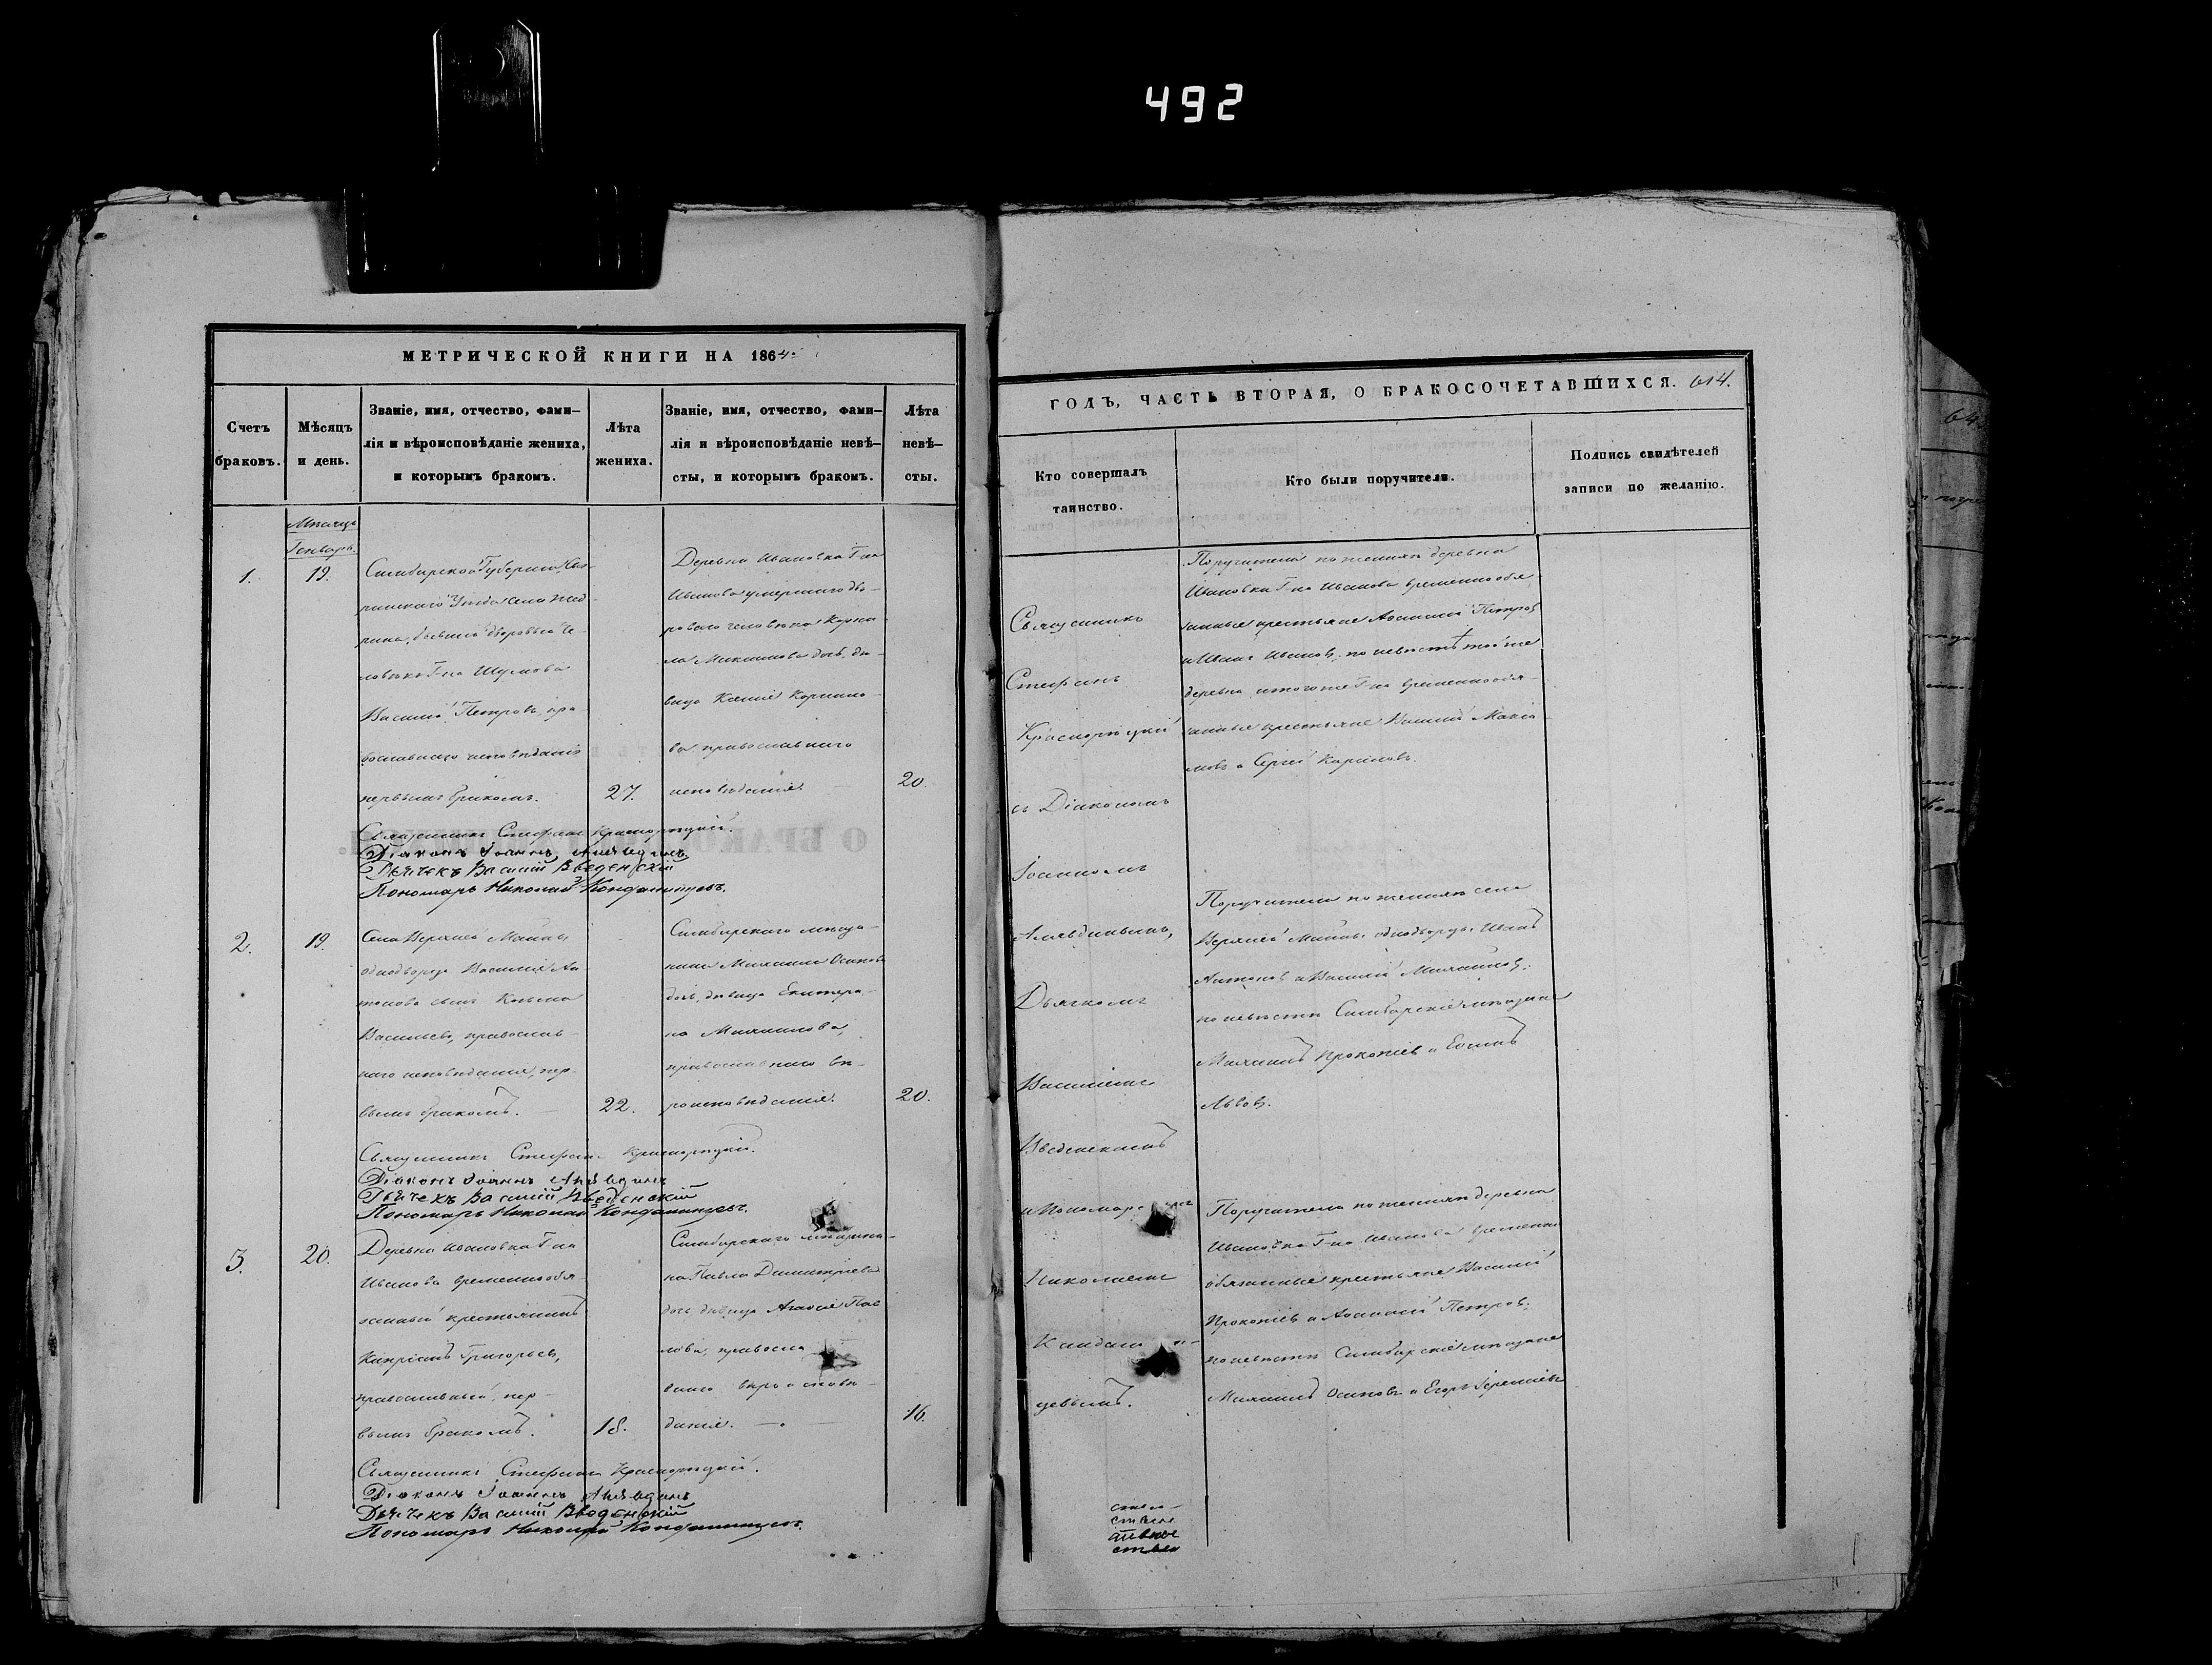 492
МЕТРИЧЕСКОЙ КНИГИ НА 1864
Счетъ
браковъ.
Мѣсяцъ
и день.
Званіе, имя, отчество, фами-
лія и вѣроисповѣданіе жениха,
и которымъ бракомъ.
Лѣта
жениха.
Званіе, имя, отчество, фами-
лія и вѣроисповѣданіе невѣ-
сты, и которымъ бракомъ.
Лѣта
невѣ-
сты.
Мѣсяцъ
Генварь.
1.
19.
Симбирской Губерніи
Уѣзда села
бывшій дворовый че-
ловѣкъ Г-на Шумова
Василій Петровъ, пра-
вославнаго исповѣданія
первымъ бракомъ.
27.
Деревни Ивановки Г-на
Иванова умершаго дво-
роваго человѣка Корни-
ла Максимова дочь, дѣ-
вица Ксенія Корнило-
ва православнаго
исповѣданія.
20.
Священникъ Стефанъ Краснорѣцкій.
Діаконъ Іоаннъ
Дьячекъ Василій Введенскій
Пономарь Николай
2.
19.
Села Верхней Майны
однодворца Василія Ан-
тонова сынъ Козьма
Васильевъ, православ-
наго исповѣданія, пер-
вымъ бракомъ.
22.
Симбирскаго мѣща-
нина Михаила Осипова
дочь, дѣвица Екатери-
на Михаилова,
православнаго вѣ-
роисповѣданія.
20.
Священникъ Стефанъ Краснорѣцкій.
Діаконъ Іоаннъ
Дьячекъ Василій Введенскій
Пономарь Николай
3.
20.
Деревни Ивановки Г-на
Иванова временнообя-
занный крестьянинъ
Кипріанъ Григорьевъ,
православный, пер-
вымъ бракомъ.
18.
Симбирскаго мѣщани-
на Павла Димитріева
дочь дѣвица Агафія Пав
лова, правосла
внаго вѣроисповѣ-
данія.
16.
Священникъ Стефанъ Краснорѣцкій.
Діаконъ Іоаннъ
Дьячекъ Василій Введенскій
Пономарь Николай
ГОДЪ, ЧАСТЬ ВТОРАЯ, О БРАКОСОЧЕТАВШИХСЯ. 614.
Кто совершалъ
таинство.
Кто были поручители.
Подпись свидѣтелей
записи по желанію.
Священникъ
Стефанъ
Краснорѣцкій
съ Діакономъ
Іоанномъ
Дьячкомъ
Василіемъ
Введенскимъ
и Пономаремъ
Николаемъ
цевымъ.
Поручители по женихѣ деревни
Ивановки Г-на Иванова временнообя-
занные крестьяне Афанасій Петровъ
и Иванъ Ивановъ; по невѣстѣ той же
деревни и того же Г-на временнообя-
занные крестьяне Василій Макси-
мовъ и Сергѣй Кириловъ.
Поручители по женихѣ села
Верхней Майны однодворцы Иванъ
Антоновъ и Василій Михайловъ;
по невѣстѣ Симбирскіе мѣщане
Михаилъ Прокопіевъ и
Львовъ.
Поручители по женихѣ деревни
Ивановки Г-на Иванова временно
обязанные крестьяне Василій
Прокопіевъ и Афанасій Петровъ;
по невѣстѣ Симбирскіе мѣщане
Михаилъ Осиповъ и Егоръ